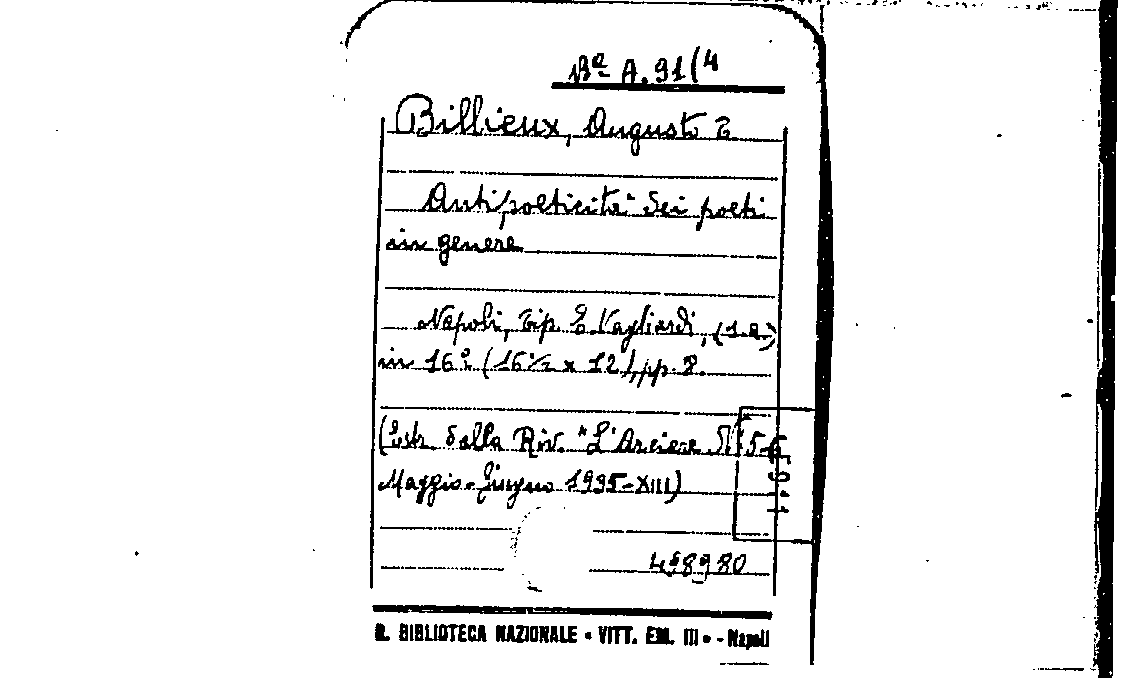 Bª A. 91(4
Billieux, Augusto E.
Antipoeticità dei poeti
in genere
Napoli, Tip. E. Vagliardi, (s.a.)
in 16º (16½ x 12), pp. 8.
(Estr. dalla Riv. "L'Arciere N. 5-6
Maggio-Giugno 1935-XIII)
R. BIBLIOTECA NAZIONALE • VITT. EM. III • - Napoli